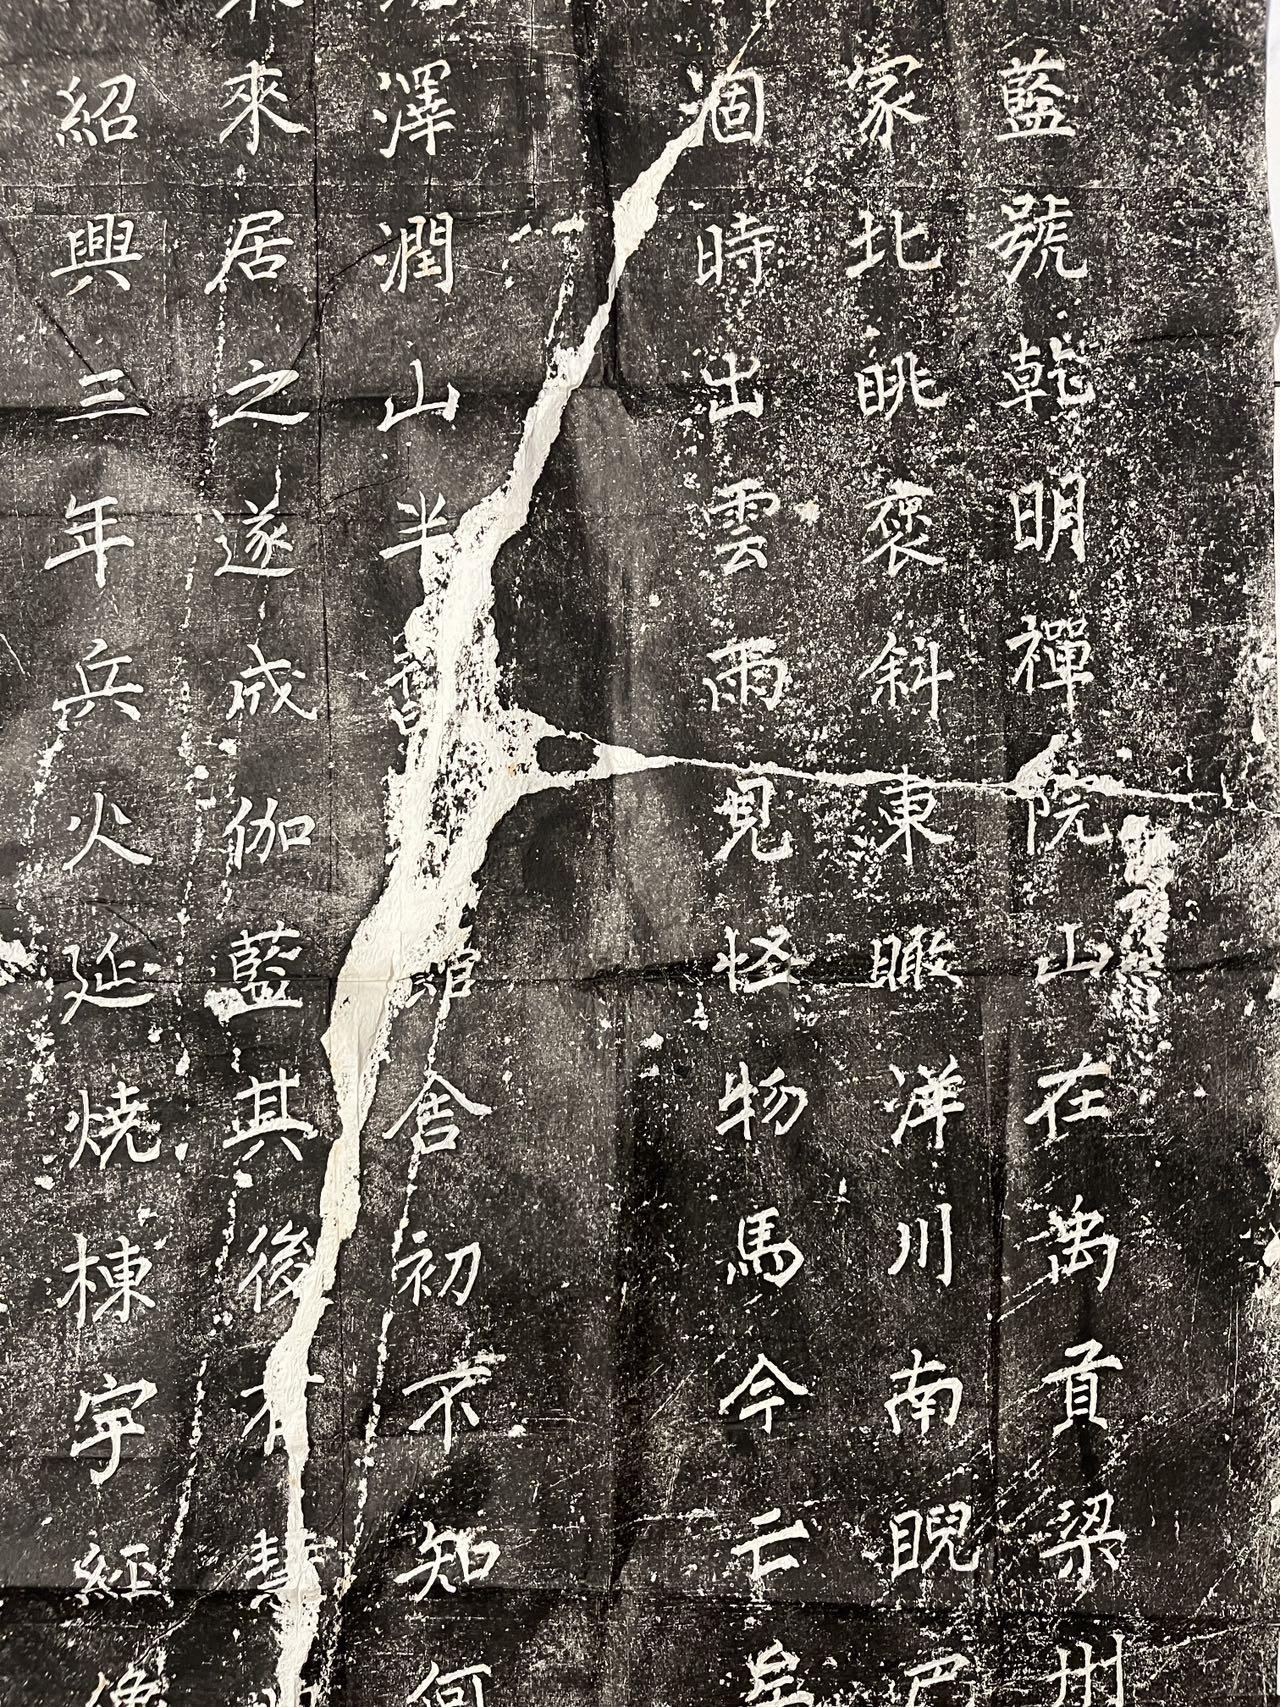 藍號乾明禪院山在禹貢梁州
家北眺褒斜東瞰洋川南睨巴
涸時出雲雨見怪物馬今亡矣
澤潤山半舊館舍初不知何
來居之遂成伽藍其後有慧
紹興三年兵火延燒棟宇經像